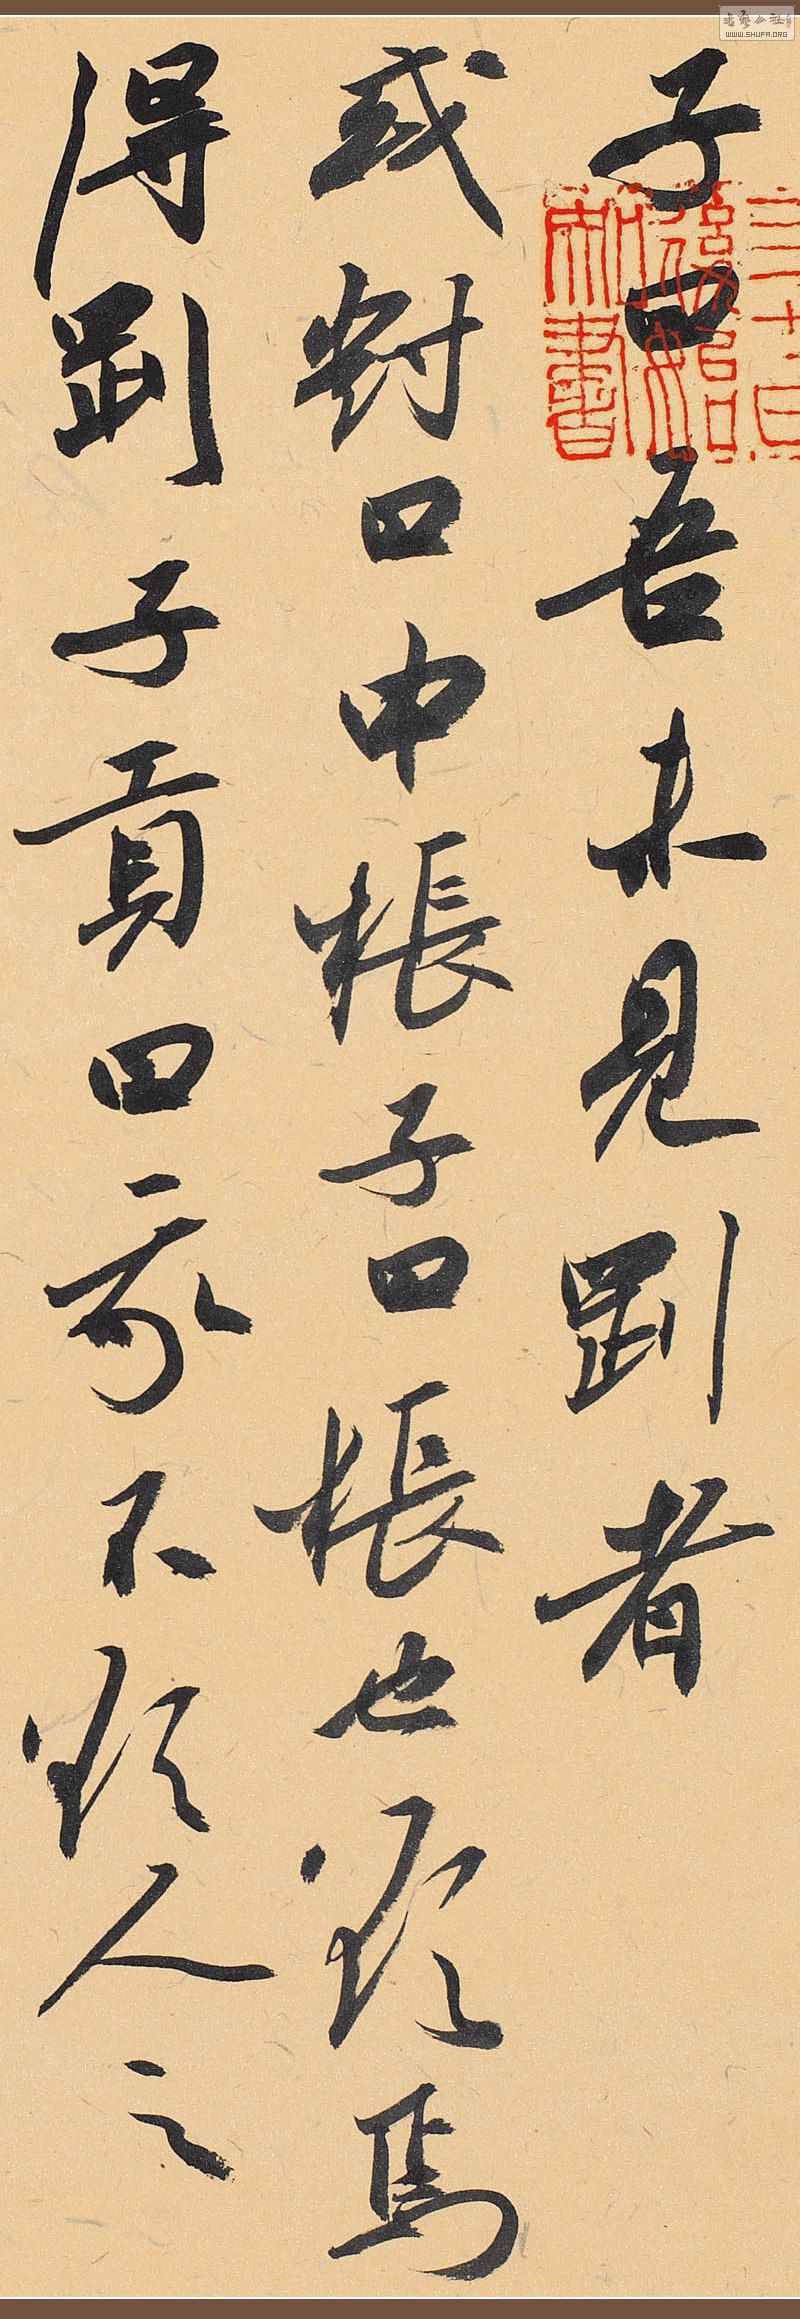 子曰吾未見剛者
或對曰申棖子曰棖也欲焉
得剛子貢曰我不欲人之
書藝公社
WWW.SHUFA.ORG